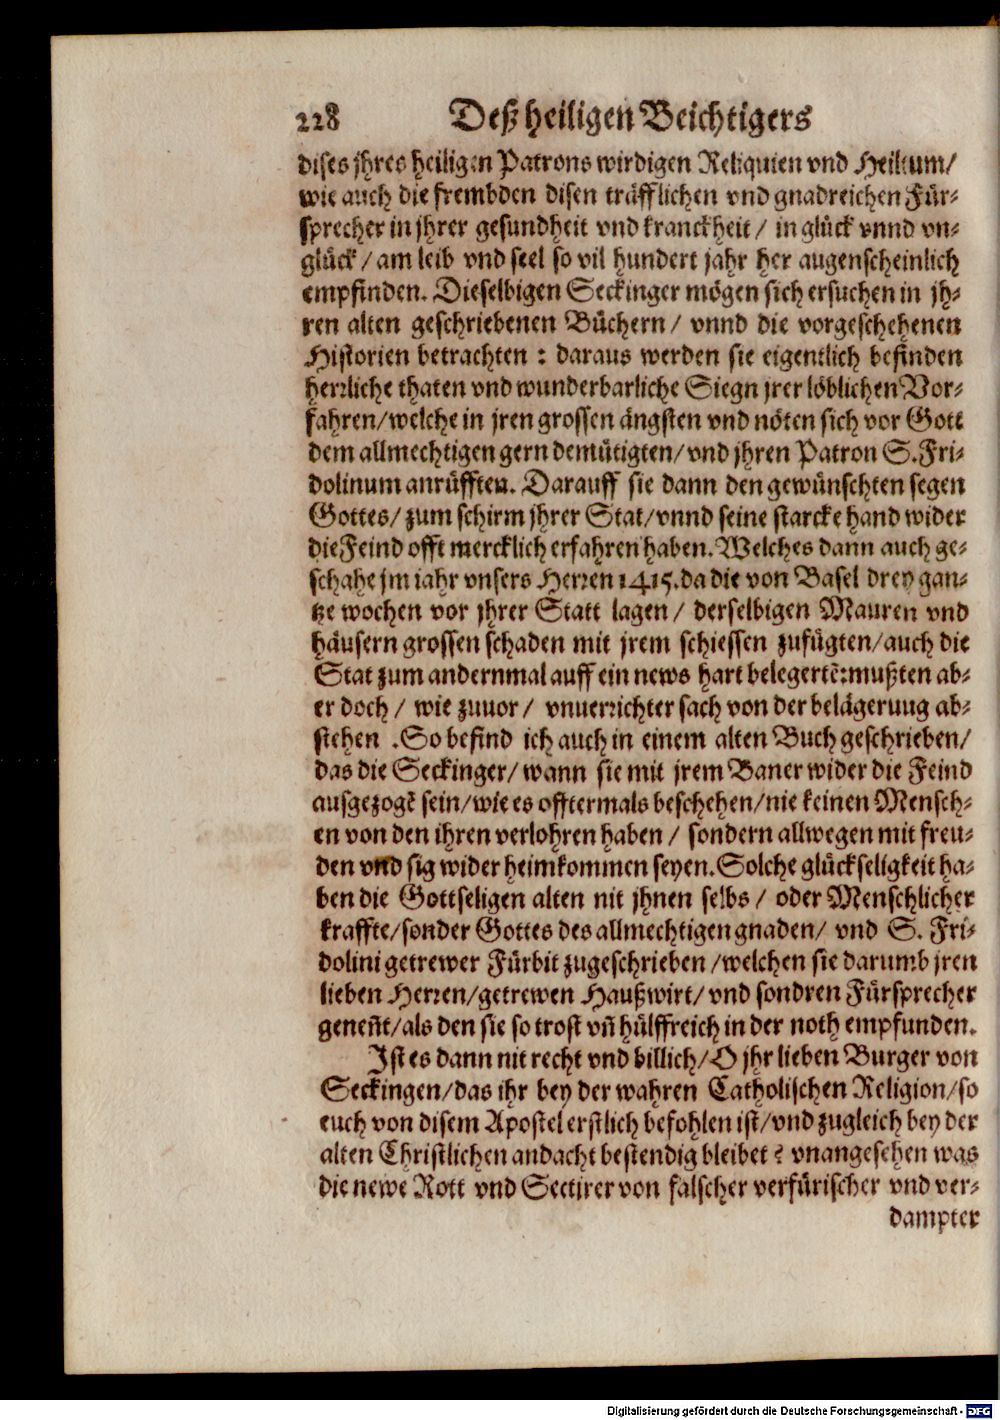 228 Deß heiligen Beichtigers
dises jhres heiligen Patrons wirdigen Reliquien vnd Heiltum/
wie auch die frembden disen träfflichen vnd gnadreichen Für-
sprecher in jhrer gesundheit vnd kranckheit / in glück vnnd vn-
glück / am leib vnd seel so vil hundert jahr her augenscheinlich
empfinden. Dieselbigen Seckinger mögen sich ersuchen in jh-
ren alten geschriebenen Büchern / vnnd die vorgeschehenen
Historien betrachten : daraus werden sie eigentlich befinden
herrliche thaten vnd wunderbarliche Siegn jrer löblichen Vor-
fahren/welche in jren grossen ängsten vnd nöten sich vor Gott
dem allmechtigen gern demütigten/vnd jhren Patron S.Fri-
dolinum anrüfften. Darauff sie dann den gewünschten segen
Gottes/ zum schirm jhrer Stat/vnnd seine starcke hand wider
die Feind offt mercklich erfahren haben. Welches dann auch ge-
schahe jm iahr vnsers Herren 1415.da die von Basel drey gan-
tze wochen vor jhrer Statt lagen / derselbigen Mauren vnd
häusern grossen schaden mit jrem schiessen zufügten/auch die
Stat zum andernmal auff ein news hart belegertē:mußten ab-
er doch / wie zuuor / vnuerrichter sach von der belägerung ab-
stehen .So befind ich auch in einem alten Buch geschrieben/
das die Seckinger/ wann sie mit jrem Baner wider die Feind
ausgezogē sein/wie es offtermals beschehen/nie keinen Mensch-
en von den ihren verlohren haben / sondern allwegen mit freu-
den vnd sig wider heimkommen seyen.Solche glückseligkeit ha-
ben die Gottseligen alten nit jhnen selbs / oder Menschlicher
kraffte/sonder Gottes des allmechtigen gnaden/ vnd S. Fri-
dolini getrewer Fürbit zugeschrieben /welchen sie darumb jren
lieben Herren/getrewen Haußwirt/ vnd sondren Fürsprecher
geneñt/als den sie so trost vñ hülffreich in der noth empfunden.
Ist es dann nit recht vnd billich/O jhr lieben Burger von
Seckingen/das ihr bey der wahren Catholischen Religion/so
euch von disem Apostel erstlich befohlen ist/vnd zugleich bey der
alten Christlichen andacht bestendig bleibet ? vnangesehen was
die newe Rott vnd Sectirer von falscher verfürischer vnd ver-
dampter
Digitalisierung gefördert durch die Deutsche Forschungsgemeinschaft - DFG